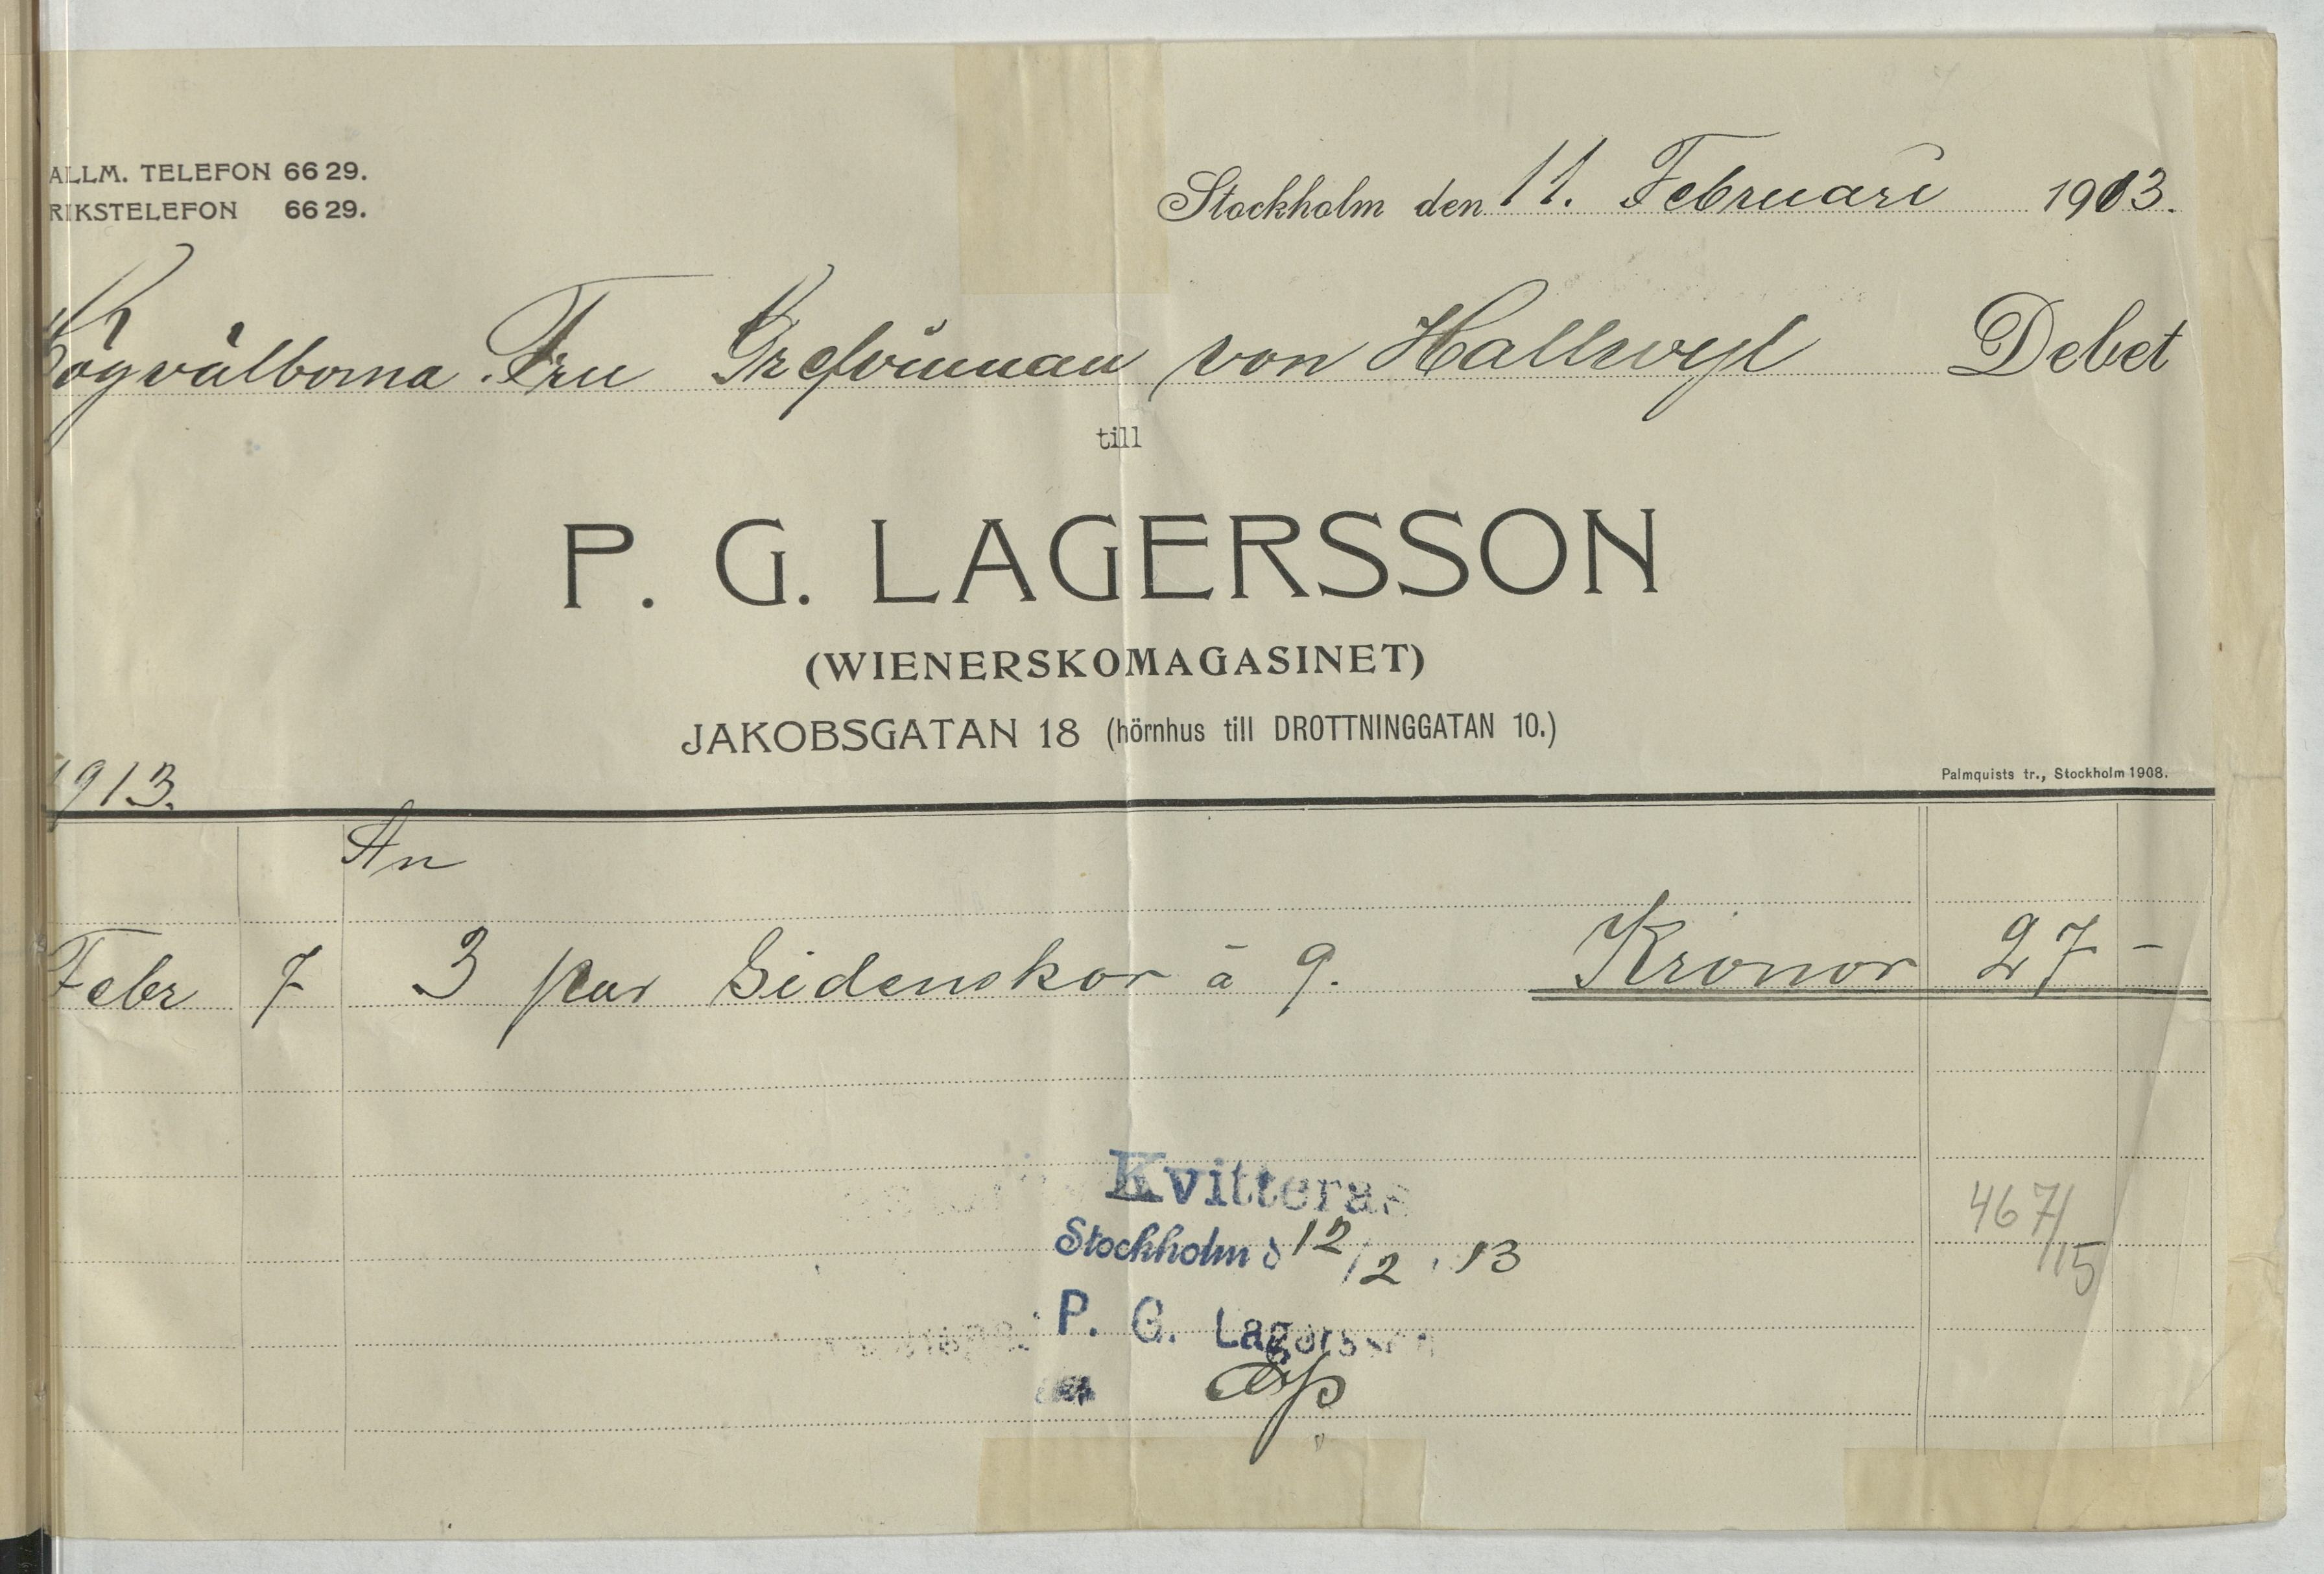 ALLM. TELEFON 66 29.
RIKSTELEFON 66 29.
Stockholm den 11. Februari 1913.
Högvälborna Fru Grefvinnan von Hallwyl Debet
till
P. G. LAGERSSON
(WIENERSKOMAGASINET)
JAKOBSGATAN 18 (hörnhus till DROTTNINGGATAN 10.)
Palmquists tr., Stockholm 1908.
1913.
An
Febr 7 3 par Sidenskor à 9. Kronor 27 –
Kvitteras
Stockholm d 12/2 . 13
P. G. Lagersson
467/15